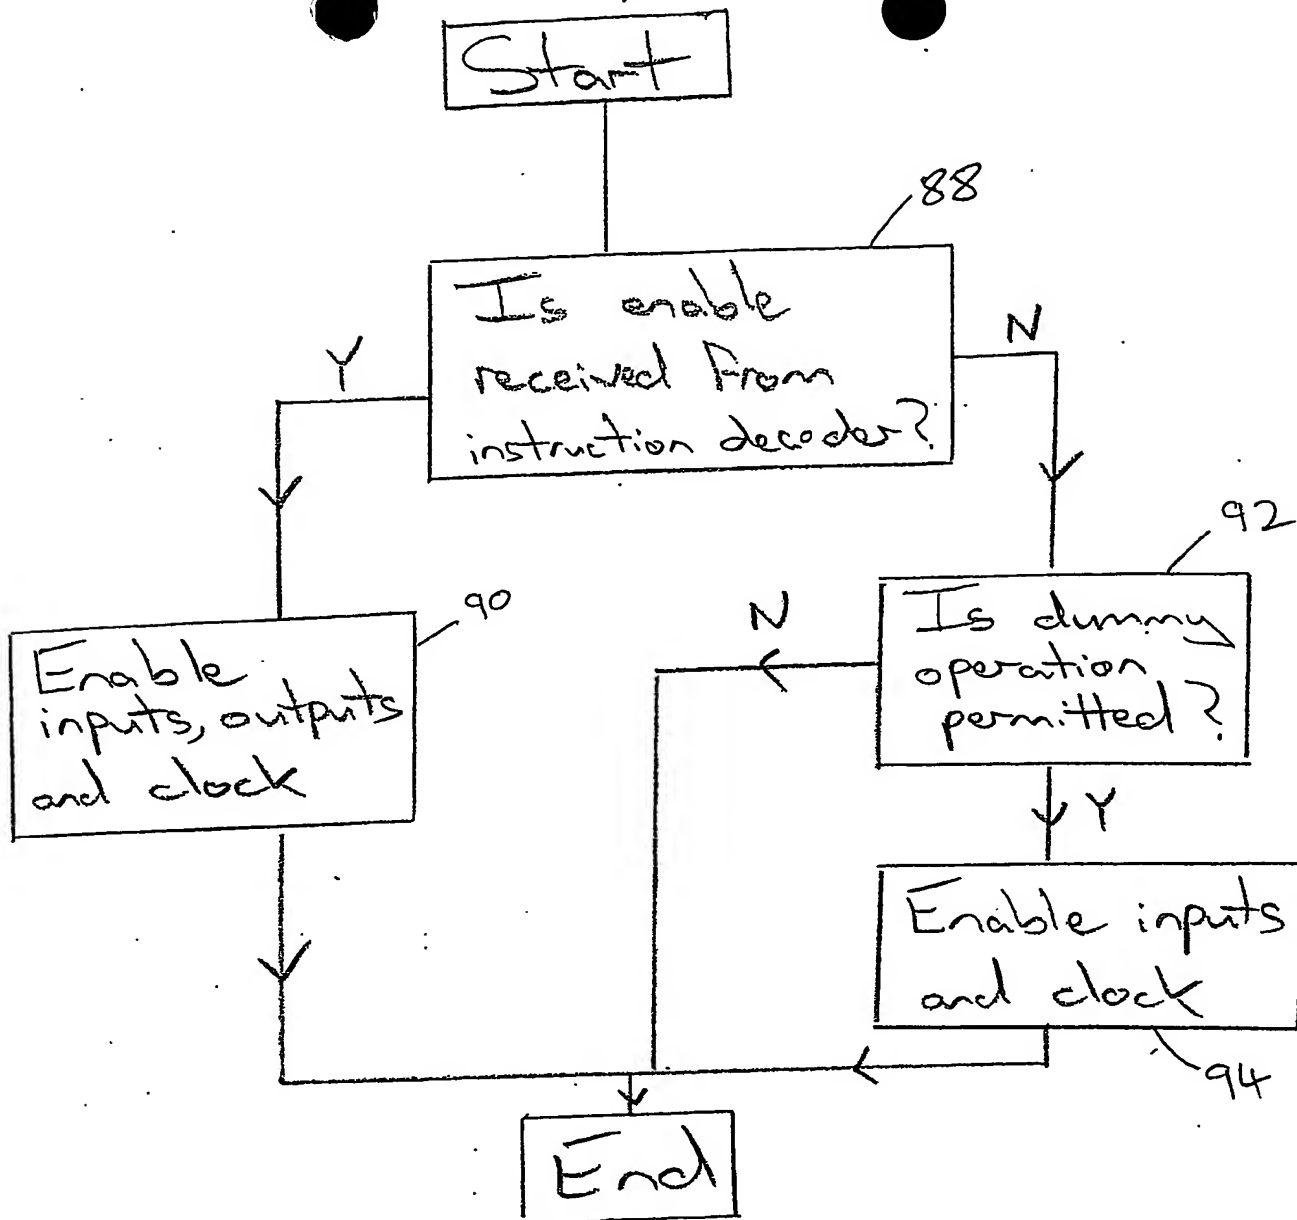 Start
88
Is enable
received from
instruction decoder?
Y
N
92
90
Enable
inputs, outputs
and clock
N
Is dummy
operation
permitted?
Y
Enable inputs
and clock
94
End